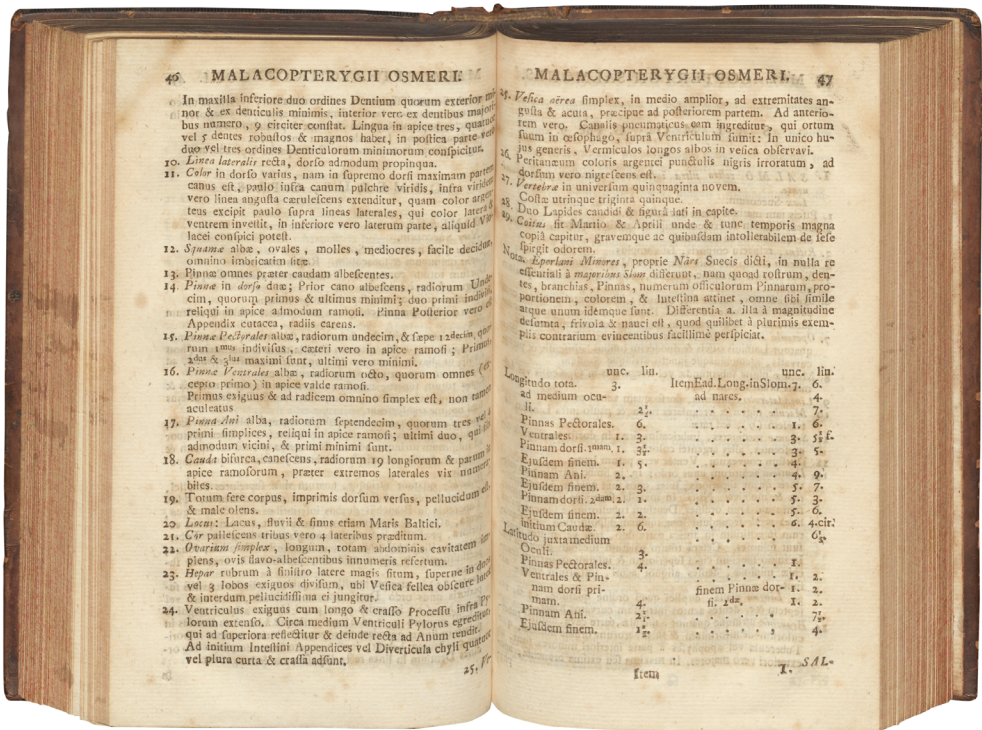 46 MALACOPTERYGII OSMERI.
In maxilla inferiore duo ordines Dentium quorum exterior mi-
nor & ex denticulis minimis, interior vero ex dentibus majori-
bus numero, 9 circiter constat. Lingua in apice tres, quatuor
vel 5 dentes robustos & magnos habet, in postica parte vero
duo vel tres ordines Denticulorum minimorum conspicitur.
10. Linea lateralis recta, dorso admodum propinqua.
11. Color in dorso varius, nam in supremo dorsi maximam partem
canus est, paulo infra canum pulchre viridis, infra viridem
vero linea angusta cærulescens extenditur, quam color argen-
teus excipit paulo supra lineas laterales, qui color latera &
ventrem investit, in inferiore vero laterum parte, aliquid Vio-
lacei conspici potest.
12. Squamæ albæ, ovales, molles, mediocres, facile deciduæ,
omnino imbricatim sitæ.
13. Pinnæ omnes præter caudam albescentes.
14. Pinnæ in dorso duæ; Prior cano albescens, radiorum Unde-
cim, quorum primus & ultimus minimi; duo primi indivisi,
reliqui in apice admodum ramosi. Pinna Posterior vero est
Appendix cutacea, radiis carens.
15. Pinnæ Pectorales albæ, radiorum undecim, & sæpe 12decim, quo-
rum 1mus indivisus, cæteri vero in apice ramosi; Primus,
2dus & 3tius maximi sunt, ultimi vero minimi.
16. Pinnæ Ventrales albæ, radiorum octo, quorum omnes (ex-
cepto primo) in apice valde ramosi.
Primus exiguus & ad radicem omnino simplex est, non tamen
aculeatus
17. Pinna Ani alba, radiorum septendecim, quorum tres vel 4
primi simplices, reliqui in apice ramosi; ultimi duo, qui sibi
admodum vicini, & primi minimi sunt.
18. Cauda bifurca, canescens, radiorum 19 longiorum & parum in
apice ramosorum, præter extremos laterales vix numera-
biles.
19. Totum fere corpus, imprimis dorsum versus, pellucidum est,
& male olens.
20 Locus: Lacus, fluvii & sinus etiam Maris Baltici.
21. Cor pallescens tribus vero 4 lateribus præditum.
22. Ovarium simplex, longum, totam abdominis cavitatem im-
plens, ovis flavo-albescentibus innumeris refertum.
23. Hepar rubrum à sinistro latere magis situm, superne in duos
vel 3 lobos exiguos divisum, ubi Vesica fellea obscure lutea
& interdum pellucidissima ei jungitur.
24. Ventriculus exiguus cum longo & crasso Processu infra Py-
lorum extenso. Circa medium Ventriculi Pylorus egreditur,
qui ad superiora reflectitur & deinde recta ad Anum tendit.
Ad initium Intestini Appendices vel Diverticula chyli quatuor
vel plura curta & crassa adsunt.
25. Ve-
MALACOPTERYGII OSMERI. 47
25. Vesica aërea simplex, in medio amplior, ad extremitates an-
gusta & acuta, præcipue ad posteriorem partem. Ad anterio-
rem vero. Canalis pneumaticus eam ingreditur, qui ortum
suum in œsophago, supra Ventriculum sumit: In unico hu-
jus generis, Vermiculos longos albos in vesica observavi.
26. Peritanæum coloris argentei punctulis nigris irroratum, ad
dorsum vero nigrescens est.
27. Vertebræ in universum quinquaginta novem.
Costæ utrinque triginta quinque.
28. Duo Lapides candidi & figurâ lati in capite.
29. Coitus fit Martio & Aprili unde & tunc temporis magna
copiâ capitur, gravemque ac quibusdam intollerabilem de sese
spirgit odorem.
Nota. Eperlani Minores, proprie Nårs Suecis dicti, in nulla re
essentiali à majoribus Slom differunt, nam quoad rostrum, den-
tes, branchias, Pinnas, numerum officulorum Pinnarum, pro-
portionem, colorem, & Intestina attinet, omne sibi simile
atque unum idemque sunt. Differentia a. illa à magnitudine
desumta, frivola & nauci est, quod quilibet à plurimis exem-
plis contrarium evincentibus facillimè perspiciat.
unc. lin. unc. lin.
Longitudo tota. 3. ItemEad.Long.inSlom. 7. 6.
ad medium ocu- ad nares. 4.
li. 2½. . . . . . . 7.
Pinnas Pectorales. 6. . . . . . . 1. 6.
Ventrales. 1. 3. . . . . . . 3. 5½ f.
Pinnam dorsi 1mam. 1. 3½. . . . . . . 3. 5.
Ejusdem finem. 1. 5. . . . . . . 4.
Pinnam Ani. 2. . . . . . . 4. 9.
Ejusdem finem. 2. 3. . . . . . . 5. 7.
Pinnam dorsi 2dam. 2. 1. . . . . . . 5. 3.
Ejusdem finem. 2. 2. . . . . . . 5. 6.
initium Caudæ. 2. 6. . . . . . . 6. 4.cir.
Latitudo juxta medium . . . . . . 6½.
Oculi. 3.
Pinnas Pectorales. 4. . . . . . . 1.
Ventrales & Pin- . . . . . . 1.
nam dorsi pri- finem Pinnæ dor- 1. 2.
mam. 4. si. 2dæ. 1. 2.
Pinnam Ani. 2½. . . . . . . 7½.
Ejusdem finem. 1½. . . . . . . 4.
Item 1. SAL-